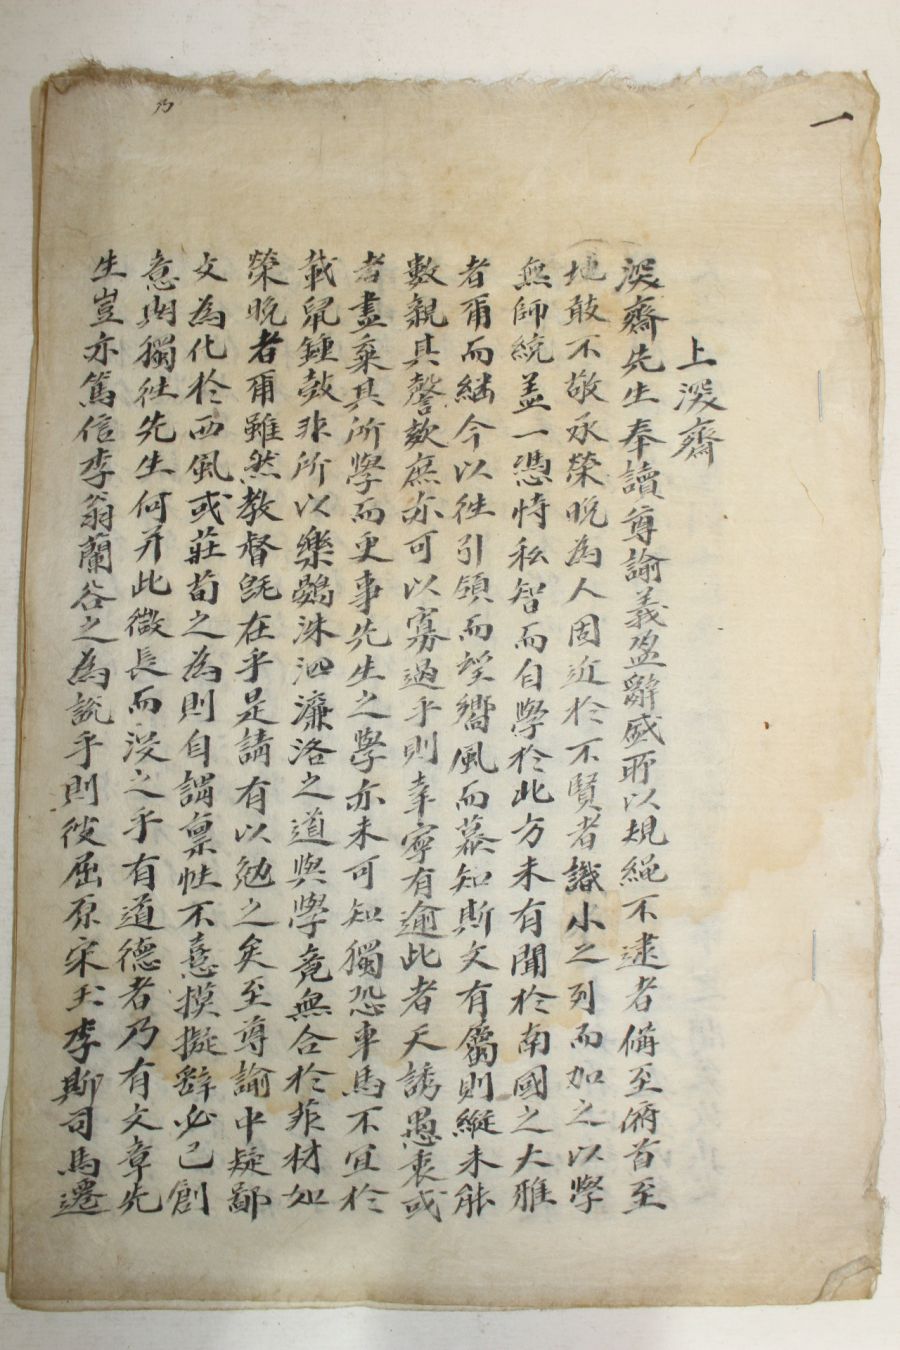 一
乃
上深齋
深齋先生奉讀尊諭義盈辭盛所以規繩不逮者備至俯首至
地敢不敬承榮晩為人固近於不賢者識小之列而加之以學
無師統盖一憑恃私智而自學於此方未有聞於南國之大雅
者爾而繼今以徃引領而望嚮風而慕知斯文有屬則縱未能
數親其謦欬庶亦可以寡過乎則幸寧有逾此者天誘愚衷或
者盡棄其所學而更事先生之學亦未可知獨恐車馬不宜於
載鼠鍾鼓非所以樂鷃洙泗濂洛之道與學竟無合於菲材如
榮晩者爾雖然教督旣在乎是請有以勉之矣至尊諭中疑鄙
文為化於西風或莊荀之為則自謂稟性不憙摸擬辭必己創
意則獨徃先生何幷此微長而沒之乎有道德者乃有文章先
生豈亦篤信李翁蘭谷之為說乎則彼屈原宋玉李斯司馬遷